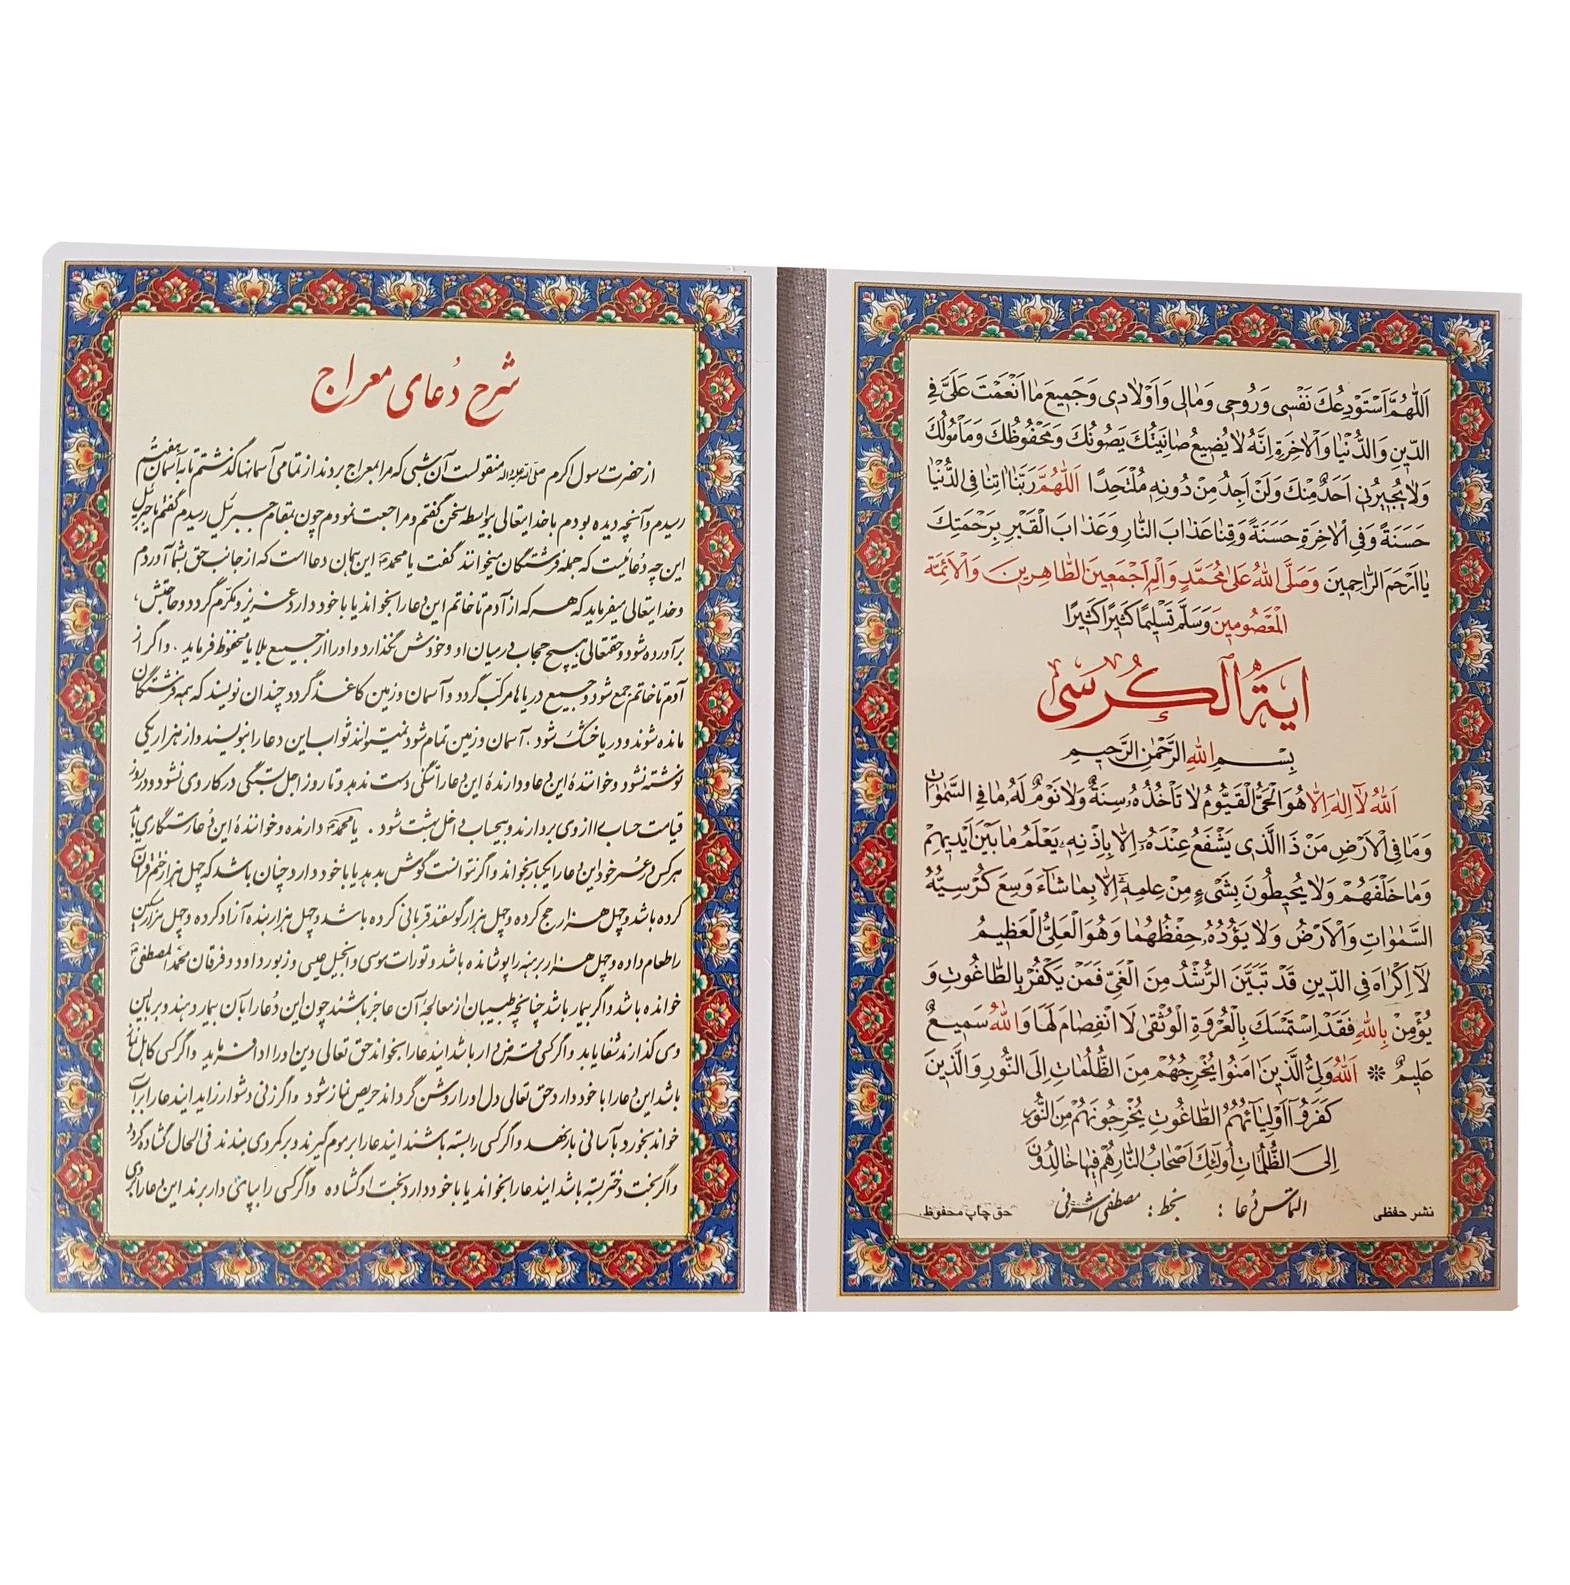 اَللّٰهُمَّ اَسْتَوْدِعُكَ نَفْسى وَرُوحى وَمٰالى وَاَوْلادى وَجَميعَ مٰا اَنْعَمْتَ عَلَىَّ فِى
الدّينِ وَالدُّنْيٰا وَالْاٰخِرَةِ اِنَّهُ لايُضيعُ صٰانِيَتُكَ يَصُونُكَ وَمَحْفُوظُكَ وَمَاْمُولُكَ
وَلايُجيرُنى اَحَدٌ مِنْكَ وَلَنْ اَجِدُ مِنْ دُونِهِ مُلْتَحِدًا اَللّٰهُمَّ رَبَّنٰا اٰتِنٰا فِى الدُّنْيٰا
حَسَنَةً وَفِى الْاٰخِرَةِ حَسَنَةً وَقِنٰا عَذٰابَ النّٰارِ وَعَذٰابَ الْقَبْرِ بِرَحْمَتِكَ
يٰا اَرْحَمَ الرّٰاحِمينَ وَصَلَّى اللّٰهُ عَلىٰ مُحَمَّدٍ وَاٰلِهِ اَجْمَعينَ الطّٰاهِرينَ وَالْاَئِمَّةِ
الْمَعْصُومينَ وَسَلَّمَ تَسْليمًا كَثيرًا كَثيرًا
اٰيَةُ الْكُرْسى
بِسْمِ اللّٰهِ الرَّحْمٰنِ الرَّحيمِ
اَللّٰهُ لآ اِلٰهَ اِلّا هُوَ الْحَىُّ الْقَيُّومُ لا تَاْخُذُهُ سِنَةٌ وَلا نَوْمٌ لَهُ مٰا فِى السَّمٰوٰاتِ
وَمٰا فِى الْاَرْضِ مَنْ ذَا الَّذى يَشْفَعُ عِنْدَهُ اِلّا بِاِذْنِهِ يَعْلَمُ مٰا بَيْنَ اَيْديهِمْ
وَمٰا خَلْفَهُمْ وَلا يُحيطُونَ بِشَىْءٍ مِنْ عِلْمِهِ اِلّا بِمٰا شٰآءَ وَسِعَ كُرْسِيُّهُ
السَّمٰوٰاتِ وَالْاَرْضَ وَلا يَؤُدُهُ حِفْظُهُمٰا وَهُوَ الْعَلِىُّ الْعَظيمُ
لآ اِكْرٰاهَ فِى الدّينِ قَدْ تَبَيَّنَ الرُّشْدُ مِنَ الْغَىِّ فَمَنْ يَكْفُرْ بِالطّٰاغُوتِ وَ
يُؤْمِنْ بِاللّٰهِ فَقَدِ اسْتَمْسَكَ بِالْعُرْوَةِ الْوُثْقىٰ لَا انْفِصٰامَ لَهٰا وَاللّٰهُ سَميعٌ
عَليمٌ اَللّٰهُ وَلِىُّ الَّذينَ اٰمَنُوا يُخْرِجُهُمْ مِنَ الظُّلُمٰاتِ اِلَى النُّورِ وَالَّذينَ
كَفَرُوآ اَوْلِيٰآئُهُمُ الطّٰاغُوتُ يُخْرِجُونَهُمْ مِنَ النُّورِ
اِلَى الظُّلُمٰاتِ اُولٰئِكَ اَصْحٰابُ النّٰارِ هُمْ فيهٰا خٰالِدُونَ
نشر حفظی التماس دعا : بخط : مصطفی اشرفی حق چاپ محفوظ.
شرح دُعای معراج
از حضرت رسول اکرم صلی الله علیه واله منقولست آن شبی که مرا بمعراج بردند از تمامی آسمانها گذشتم تا به آسمان هفتم
رسیدم و آنچه دیده بودم با خدایتعالی بیواسطه سخن گفتم و مراجعت نمودم چون بمقام جبرئیل رسیدم گفتم یا جبرئیل
این چه دعائیست که جمله فرشتگان میخوانند گفت یا محمد این همان دعا است که از جانب حق بشما آوردم
و خدایتعالی میفرماید که هر که از آدم تا خاتم این دعا را بخواند یا با خود دارد عزیز و مکرم گردد و حاجتش،
برآورده شود و حقتعالی هیچ حجاب در میان او و خودش نگذارد و او را از جمیع بلایا محفوظ فرماید. و اگر از
آدم تا خاتم جمع شود و جمیع دریاها مرکب گردد و آسمان و زمین کاغذ گردد چندان نویسند که همه فرشتگان
مانده شوند و دریا خشک شود، آسمان و زمین تمام شود نمیتوانند ثواب این دعا را بنویسند و از هزار یکی
نوشته نشود و خوانندهٔ این دعا و دارندهٔ این دعا را تنگی دست ندهد و تا روز اجل بستگی در کار وی نشود و در روز
قیامت حساب از وی بردارند و بیحساب داخل بهشت شود. یا محمد دارنده و خوانندهٔ این دعا رستگاری یابد
هر کس در عمر خود این دعا را یکبار بخواند و اگر نتوانست گوش بدهد یا با خود دارد چنان باشد که چهل هزار ختم قرآن
کرده باشد و چهل هزار حج کرده و چهل هزار گوسفند قربانی کرده باشد و چهل هزار بنده آزاد کرده و چهل هزار مسکین
را طعام داده و چهل هزار برهنه را پوشانده باشد و تورات موسی و انجیل عیسی و زبور داود و فرقان محمد المصطفی
خوانده باشد و اگر بیمار باشد چنانچه طبیبان از معالجهٔ آن عاجز باشند چون این دعا را بآن بیمار دهند و بر بالین
وی گذارند شفا یابد و اگر کسی قرض دار باشد ایندعا را بخواند حق تعالی دین او را ادا فرماید و اگر کسی کاهل نماز
باشد این دعا را با خود دارد حق تعالی دل او را روشن گرداند حریص نماز شود و اگر زنی دشوار زاید ایندعا را بر آب
خواند بخورد بآسانی بار نهد و اگر کسی را بسته باشند ایندعا را بر موم گیرند و بر کمر وی بندند فی الحال گشاده گردد
و اگر بخت دختر بسته باشد ایندعا را بخواند یا با خود دارد بخت او گشاده و اگر کسی را بپای دار برند این دعا را بر وی